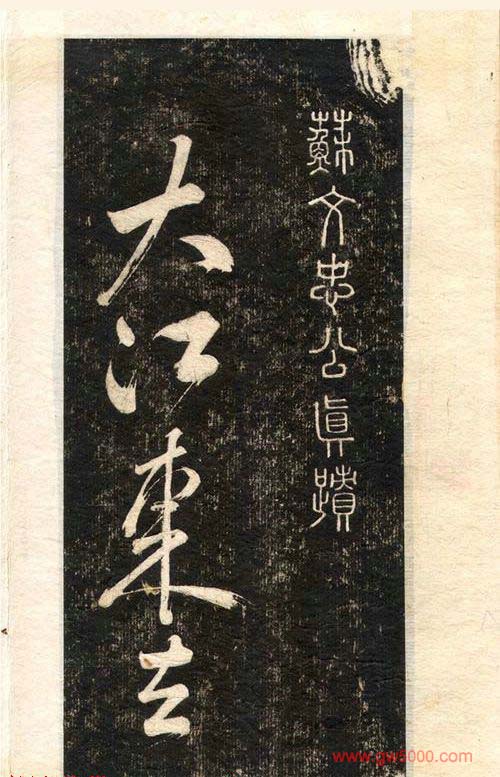 蘇文忠公眞蹟
大江東去
www.gw5000.com